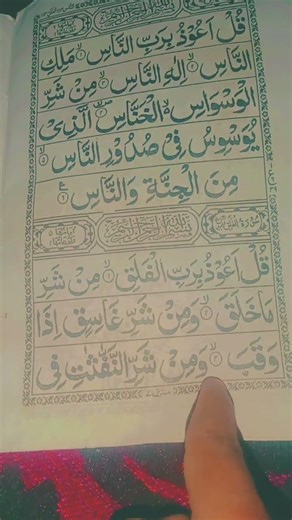 قُلْ اَعُوْذُ بِرَبِّ النَّاسِ ۙ﴿۱﴾ مَلِكِ
النَّاسِ ۙ﴿۲﴾ اِلٰهِ النَّاسِ ۙ﴿۳﴾ مِنْ شَرِّ
الْوَسْوَاسِ ۙ۬ الْخَنَّاسِ ۪ۙ﴿۴﴾ الَّذِیْ
یُوَسْوِسُ فِیْ صُدُوْرِ النَّاسِ ۙ﴿۵﴾
مِنَ الْجِنَّةِ وَالنَّاسِ ﴿۶﴾
بِسْمِ اللّٰهِ الرَّحْمٰنِ الرَّحِیْمِ
قُلْ اَعُوْذُ بِرَبِّ الْفَلَقِ ۙ﴿۱﴾ مِنْ شَرِّ
مَا خَلَقَ ۙ﴿۲﴾ وَمِنْ شَرِّ غَاسِقٍ اِذَا
وَقَبَ ۙ﴿۳﴾ وَمِنْ شَرِّ النَّفّٰثٰتِ فِی